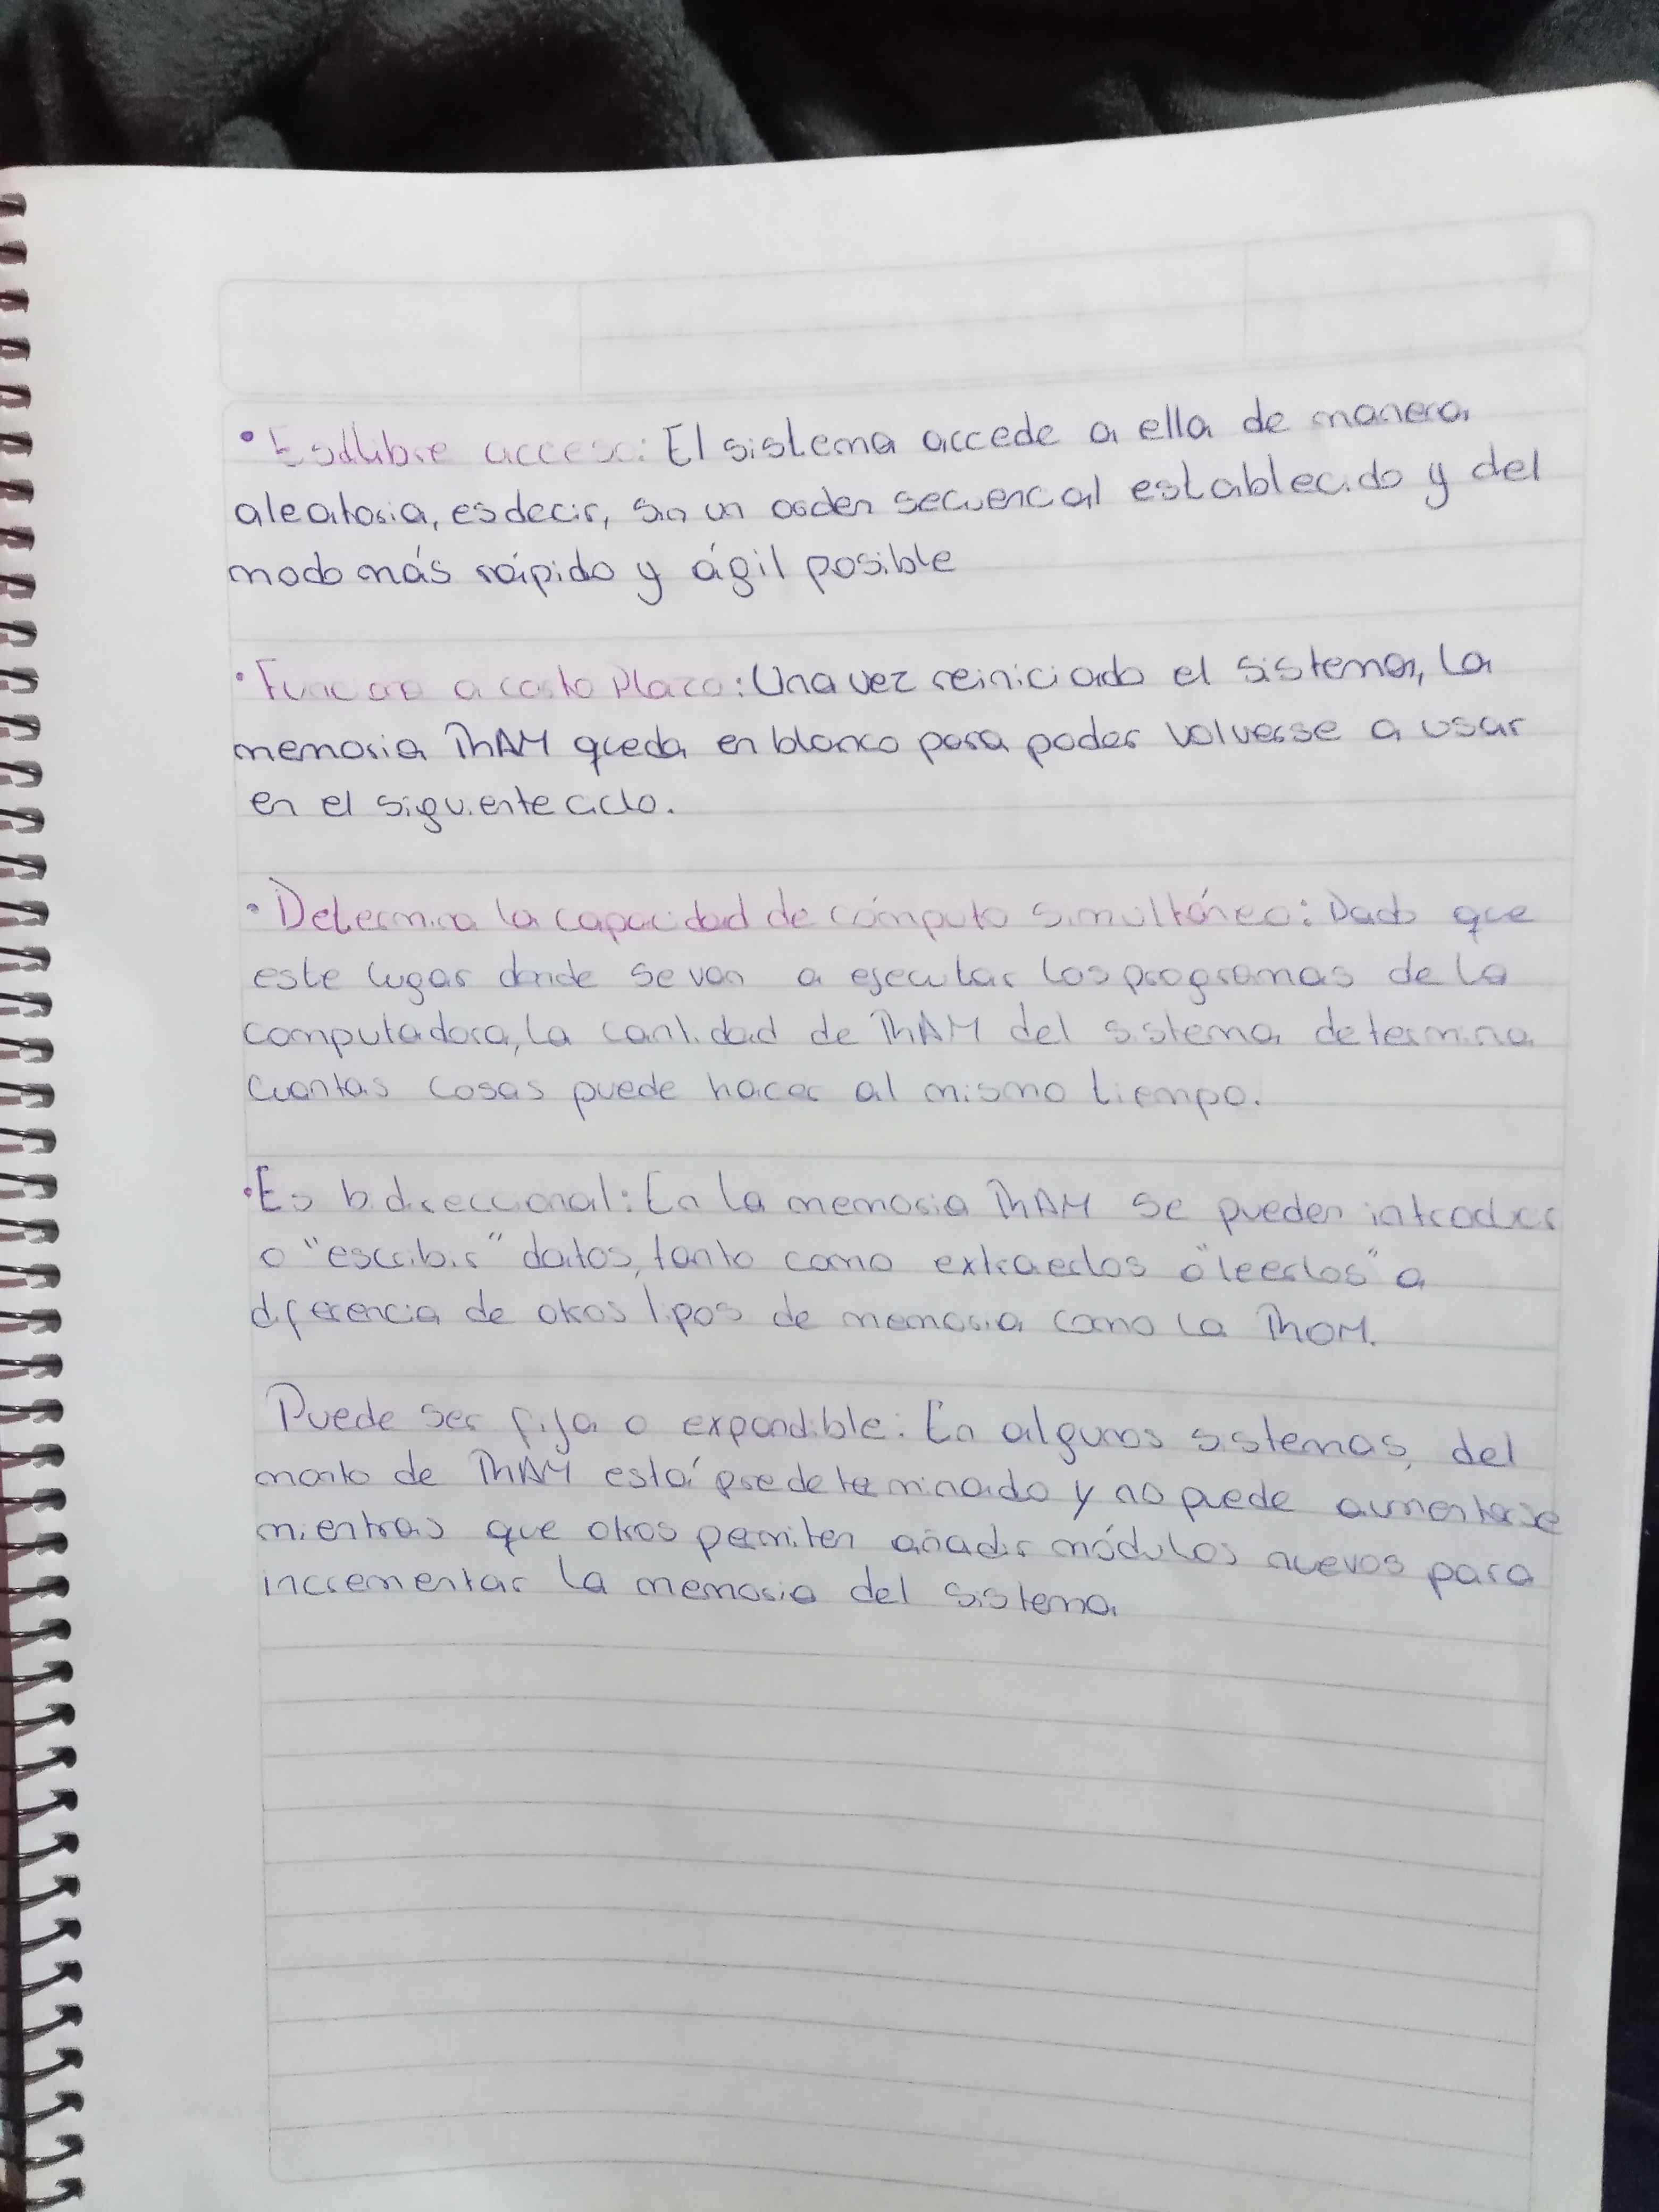 • Es de libre acceso: El sistema accede a ella de manera
aleatoria, es decir, sin un orden secuencial establecido y del
modo más rápido y ágil posible
• Funciona a corto Plazo: Una vez reiniciado el sistema, la
memoria RAM queda en blanco para poder volverse a usar
en el siguiente ciclo.
• Determina la capacidad de cómputo simultáneo: Dado que
este lugar donde se van a ejecutar los programas de la
computadora, la cantidad de RAM del sistema determina
cuantas cosas puede hacer al mismo tiempo.
• Es bidireccional: En la memoria RAM se pueden introducir
o "escribir" datos, tanto como extraerlos o "leerlos" a
diferencia de otros tipos de memoria como la ROM.
Puede ser fija o expandible: En algunos sistemas, del
monto de RAM está predeterminado y no puede aumentarse
mientras que otros permiten añadir módulos nuevos para
incrementar la memoria del sistema